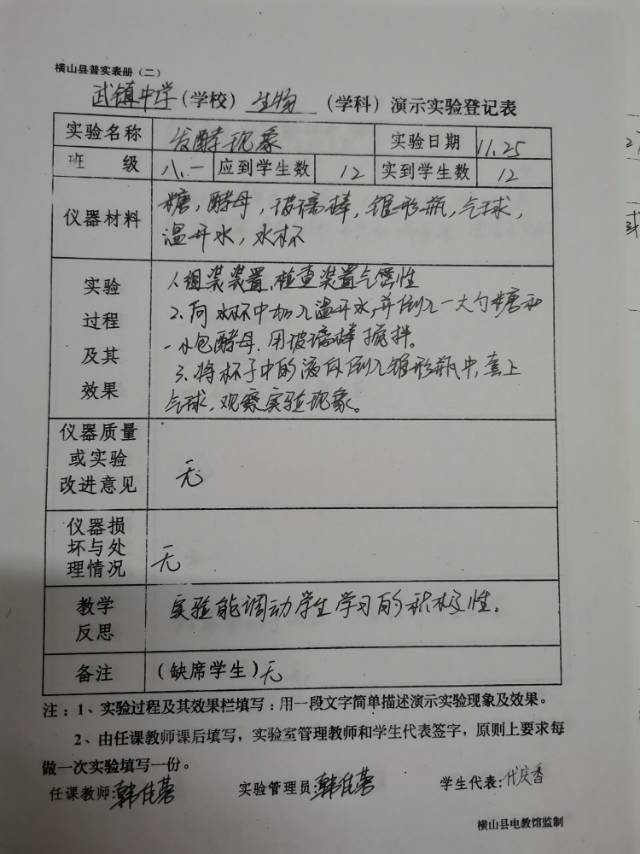 横山县普实表册（二）
武镇中学（学校）生物（学科）演示实验登记表
实验名称 发酵现象 实验日期 11.25
班 级 八.一 应到学生数 12 实到学生数 12
仪器材料
糖，酵母，玻璃棒，锥形瓶，气球，
温开水，水杯
实验
过程
及其
效果
1.组装装置，检查装置气密性
2.向水杯中加入温开水，并倒入一大勺糖和
一小包酵母，用玻璃棒搅拌。
3.将杯子中的液体倒入锥形瓶中，套上
气球，观察实验现象。
仪器质量
或实验
改进意见
无
仪器损
坏与处
理情况
无
教学
反思
实验能调动学生学习的积极性。
备注 （缺席学生）无
注：1、实验过程及其效果栏填写：用一段文字简单描述演示实验现象及效果。
2、由任课教师课后填写，实验室管理教师和学生代表签字，原则上要求每
做一次实验填写一份。
任课教师： 实验管理员： 学生代表：
横山县电教馆监制